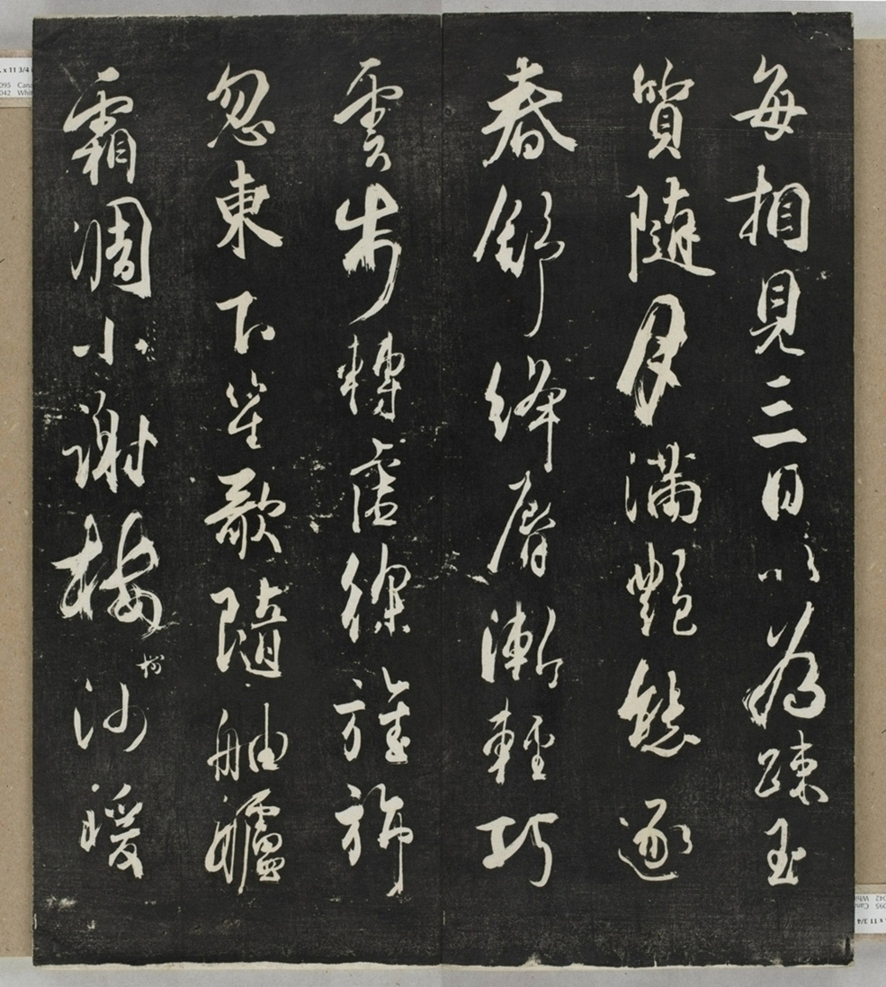 每相見三日以為疎玉
質隨月滿艷態逐
春舒絳脣漸輕巧
雲步轉虛徐旌旆
忽東下笙歌隨舳艫
霜凋小謝樓樹沙暖
x 11 3/4
095
042